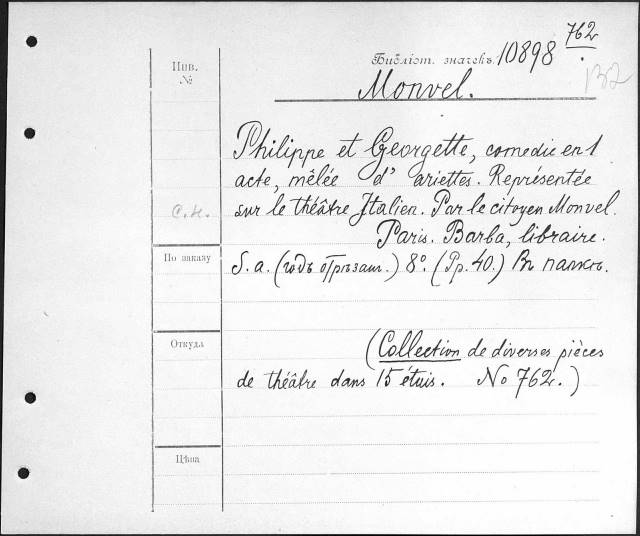 762
Библіот. значекъ. 10898
132
Инв.
№
Monvel.
Philippe et Georgette, comedie en 1
acte, mêlée d' ariettes. Représentée
с.н.
sur le théâtre Italien. Par le citoyen Monvel.
Paris. Barba, libraire.
По заказу
S. a. (годъ отрѣзанъ.) 8º. (Pp. 40.) Въ папкѣ.
Откуда
(Collection de diverses pièces
de théâtre dans 15 étuis. No 762.)
Цѣна